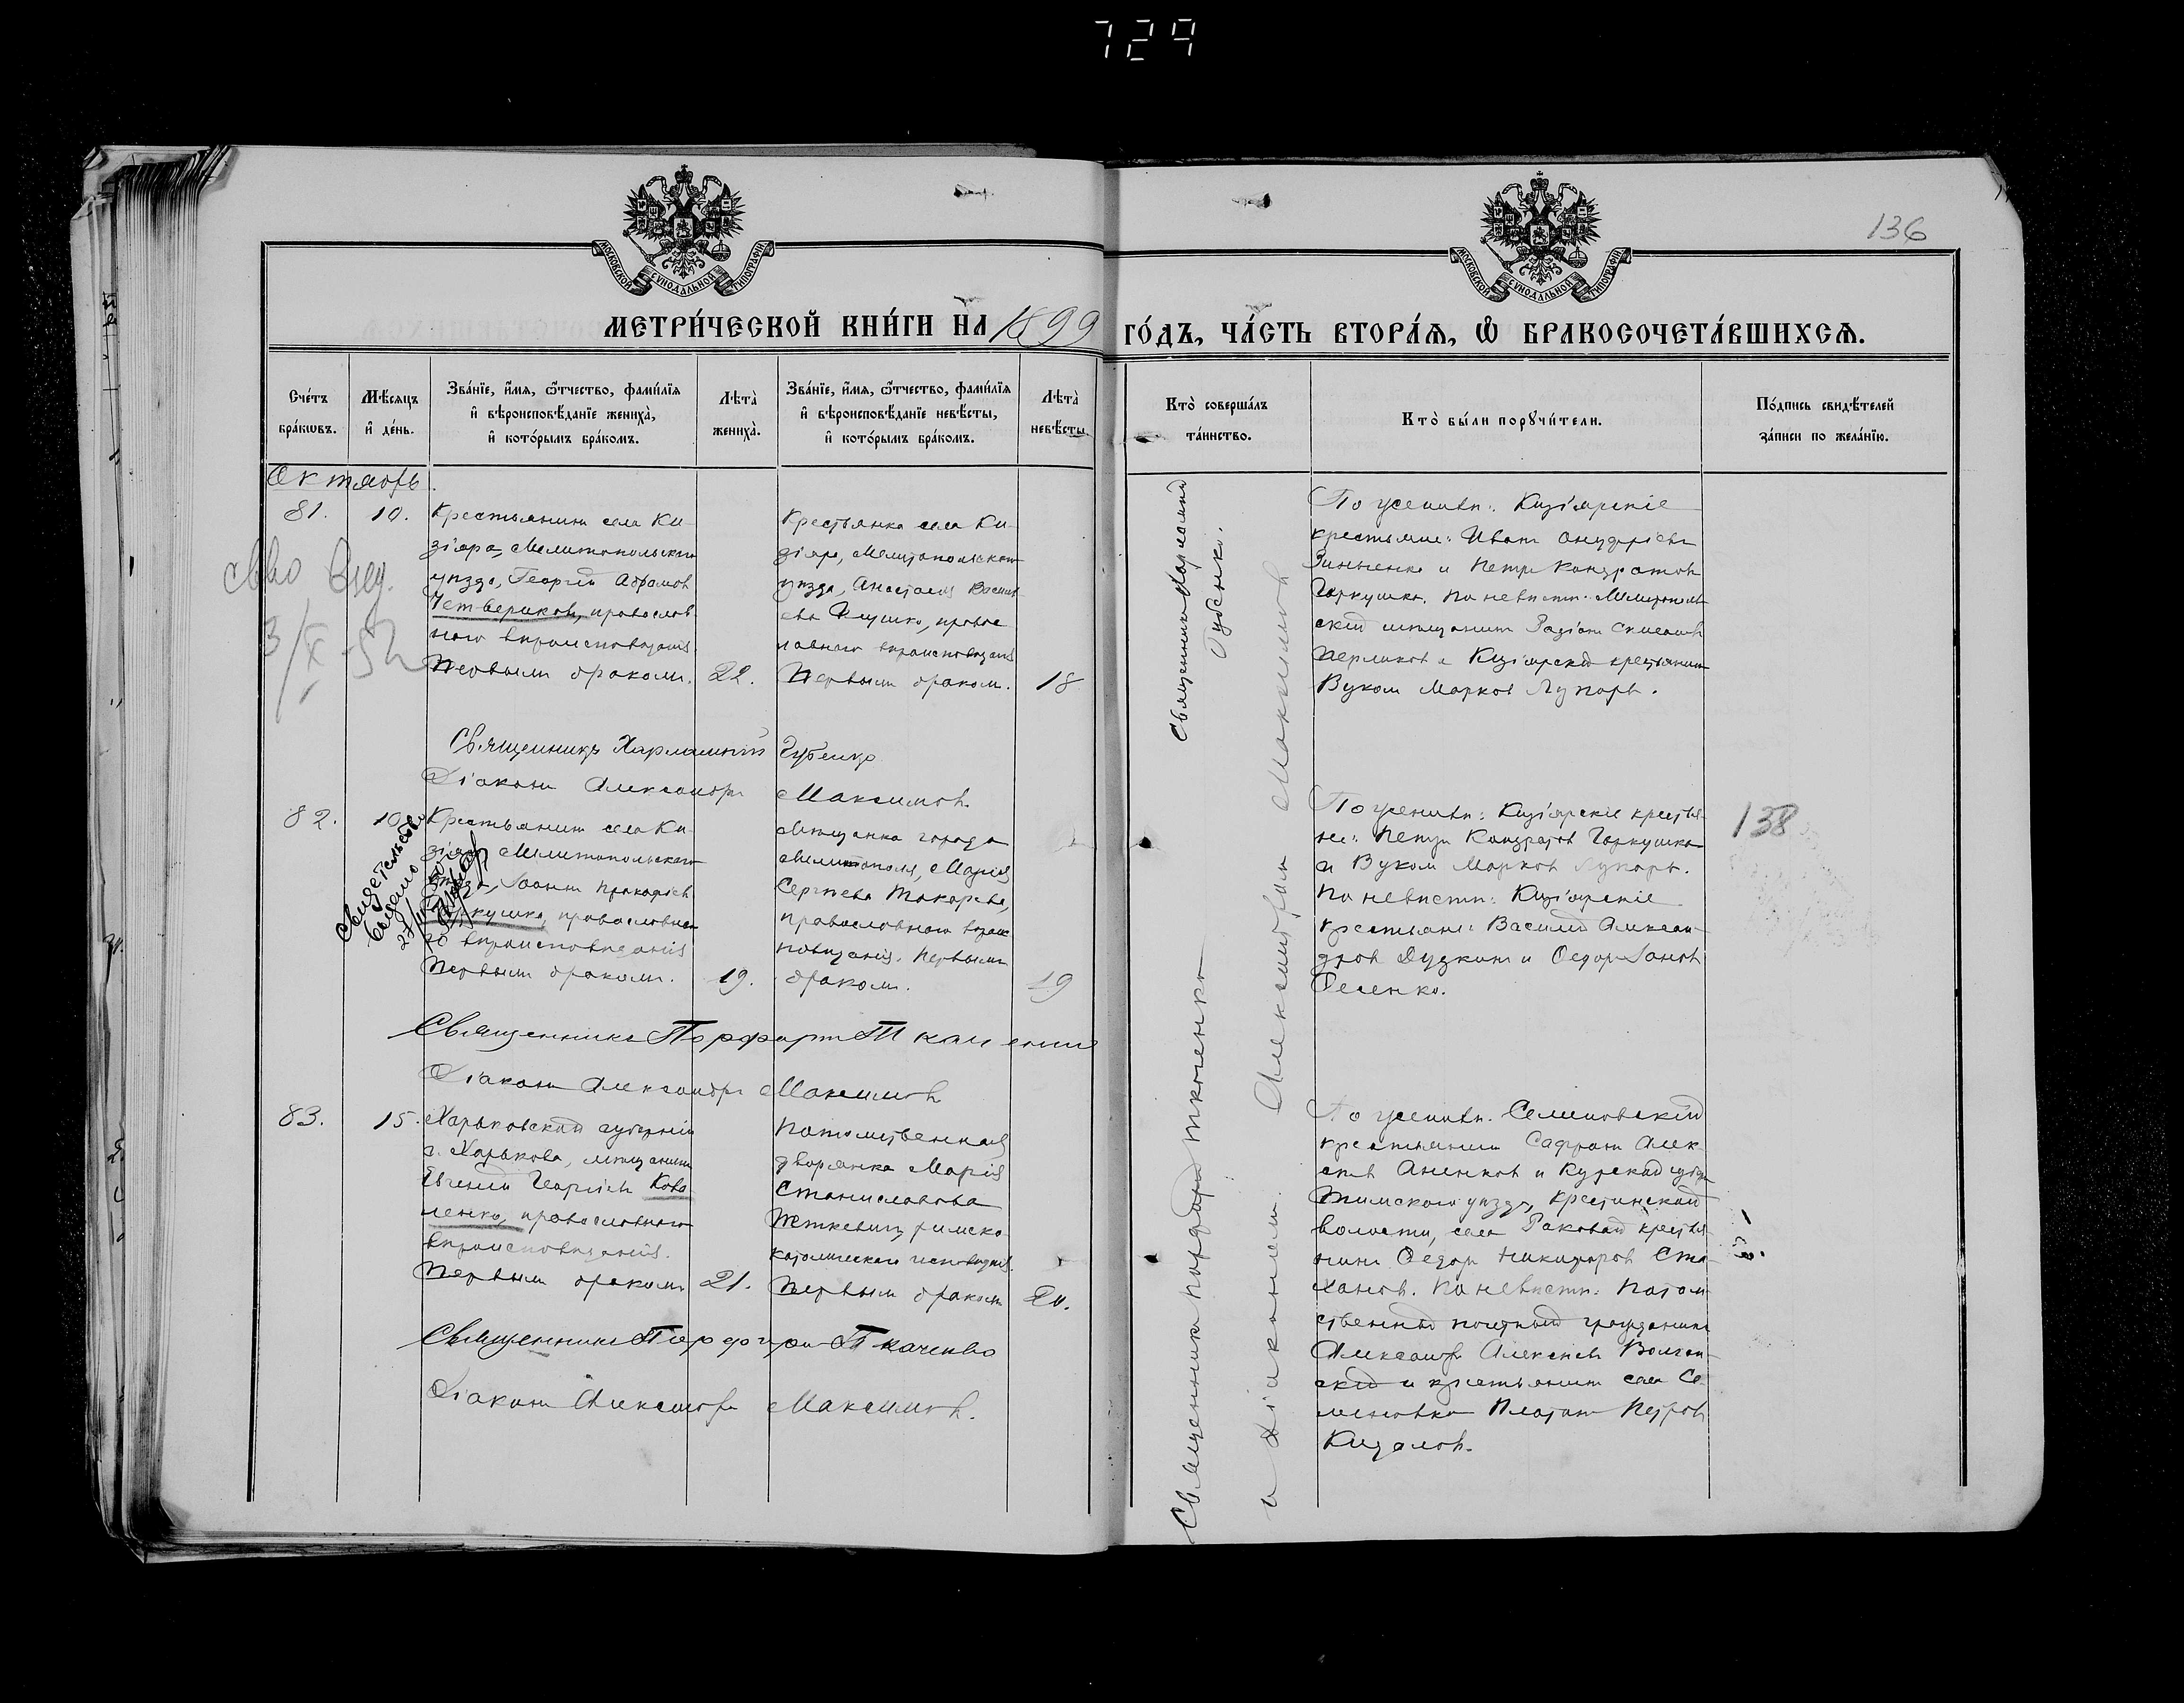 729
136
МОСКОВСКОЙ СѴНОДАЛЬНОЙ ТИПОГРАФІИ
МОСКОВСКОЙ СѴНОДАЛЬНОЙ ТИПОГРАФІИ
МЕТРИ́ЧЕСКОЙ КНИ́ГИ НА 1899 ГО́ДЪ, ЧА́СТЬ ВТОРА́Ѧ, Ѡ҆ БРАКОСОЧЕТА́ВШИХСѦ.
Сче́тъ
бра́кѡвъ.
Мѣ́сѧцъ
и҆ де́нь.
Зва́нїе, и҆́мѧ, ѻ҆́тчество, фами́лїѧ
и҆ вѣроисповѣ́данїе жениха̀,
и҆ кото́рымъ бра́комъ.
Лѣ́та̀
жениха̀.
Зва́нїе, и҆́мѧ, ѻ҆́тчество, фами́лїѧ
и҆ вѣроисповѣ́данїе невѣ́сты,
и҆ кото́рымъ бра́комъ.
Лѣ́та̀
невѣ́сты
Кто̀ соверша́лъ
та́инство.
Кто̀ бы́ли порꙋчи́тели.
По́дпись свидѣ́телей
за́писи по жела́нїю.
Октябрь.
81.
10.
Крестьянинъ села Ки-
зіяра, Мелитопольскаго
уѣзда, Георгій Абрамовъ
Четвериковъ, православ-
наго вѣроисповѣданія
Первымъ бракомъ.
22.
Крестьянка села Ки-
зіяра, Мелитопольскаго
уѣзда, Анастасія Василь-
ева, правос-
лавнаго вѣроисповѣданія
Первымъ бракомъ.
18
Священникъ Харлампій
Губенко.
По женихѣ: Кизіярскіе
крестьяне: Иванъ
Зинченко и Петръ Кондратовъ
Гаркушка. По невѣстѣ: Мелитополь-
скій мѣщанинъ
и Кизіярскій крестьянинъ
Вуколъ Марковъ Лупарь.
Священникъ Харлампій Губенко
Діаконъ Александръ Максимовъ.
82.
10
Крестьянинъ села Ки-
зіяра Мелитопольскаго
уѣзда, Іоаннъ Прокофіевъ
Гаркушка, православна-
го вѣроисповѣданія
Первымъ бракомъ.
19.
Мѣщанка города
Мелитополя, Марія
Сергѣева Токарева,
православнаго вѣроис-
повѣданія. Первымъ
бракомъ.
19
Свидетельство
выдано
По женихѣ: Кизіярскіе крестья-
не: Петръ Кондратовъ Гаркушка
и Вуколъ Марковъ Лупарь.
По невѣстѣ: Кизіярскіе
крестьяне: Василій Алексан-
дровъ Дудкинъ и Ѳедоръ
138
Священникъ Порфирій Ткаченко
Діаконъ Александръ Максимовъ
83.
15.
Харьковской губерніи
г. Харькова, мѣщанинъ
Евгеній Георгіевъ Кова-
ленко, православнаго
вѣроисповѣданія.
Первымъ бракомъ
21.
Потомственная
дворянка Марія
Станиславова
Петкевичъ, римско-
католическаго исповѣданія.
Первымъ бракомъ
20.
Священникъ Порфирій Ткаченко
и Діакономъ Александромъ Максимовымъ
По женихѣ. Семеновскій
крестьянинъ Сафронъ Алек-
сѣевъ Аненковъ и Курской губер.
Тимскаго уѣзда, Крестинской
волости, села Раковой крестья-
нинъ Ѳедоръ Никифоровъ Ста-
хановъ. По невѣстѣ: Потом-
ственный почетный гражданинъ
Александръ Алексѣевъ Волган-
скій и крестьянинъ села Се-
меновки Платонъ Петровъ
Священникъ Порфирій Ткаченко
Діаконъ Александръ Максимовъ.